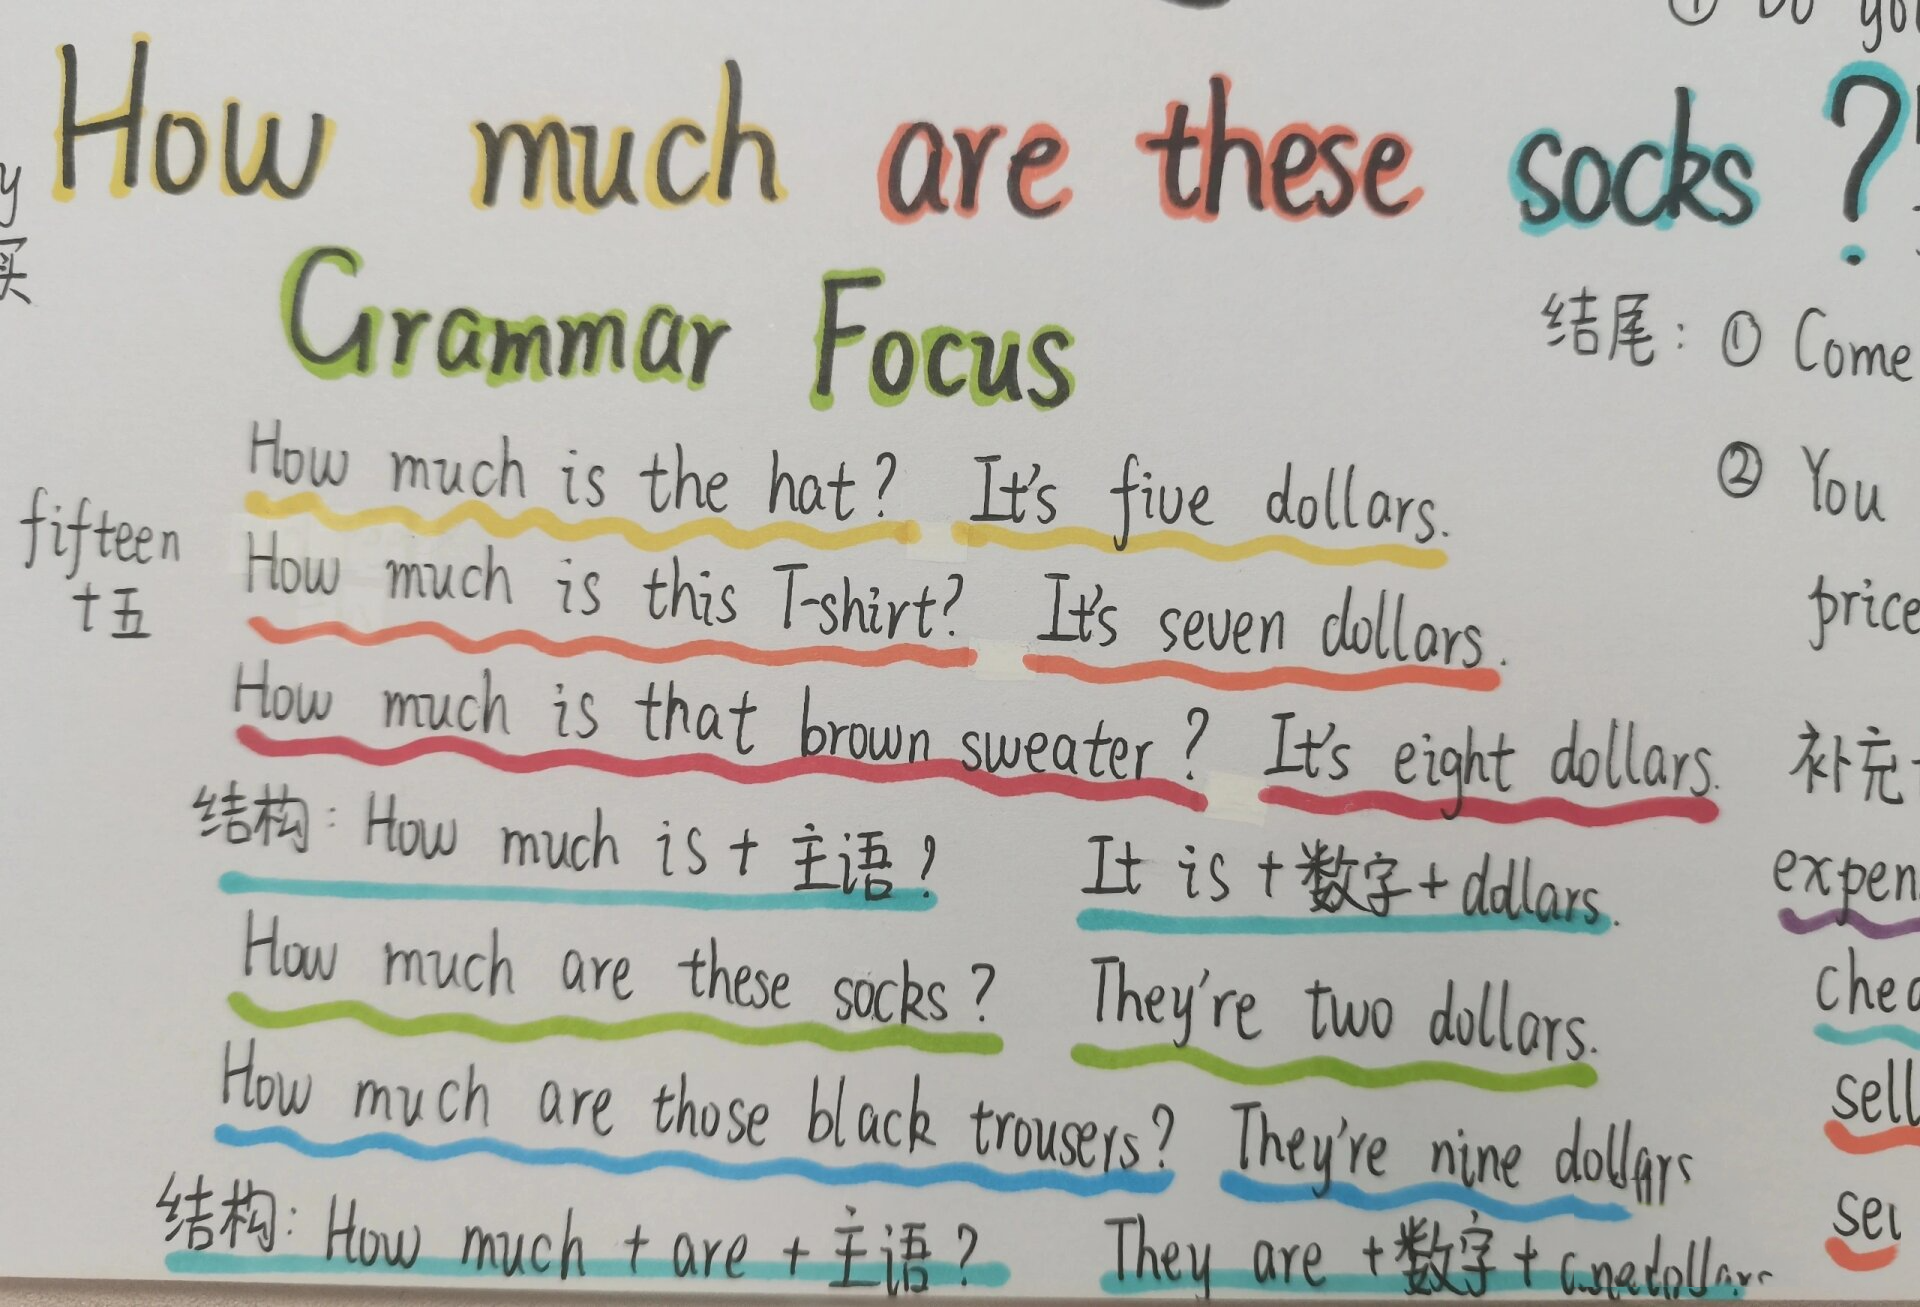 How much are these socks ?
Grammar Focus
How much is the hat? It's five dollars.
How much is this T-shirt? It's seven dollars.
How much is that brown sweater? It's eight dollars.
结构: How much is + 主语? It is + 数字 + dollars.
How much are these socks? They're two dollars.
How much are those black trousers? They're nine dollars
结构: How much + are + 主语? They are + 数字 +
fifteen
十五
y
买
结尾: ① Come
② You
price
补充
sell